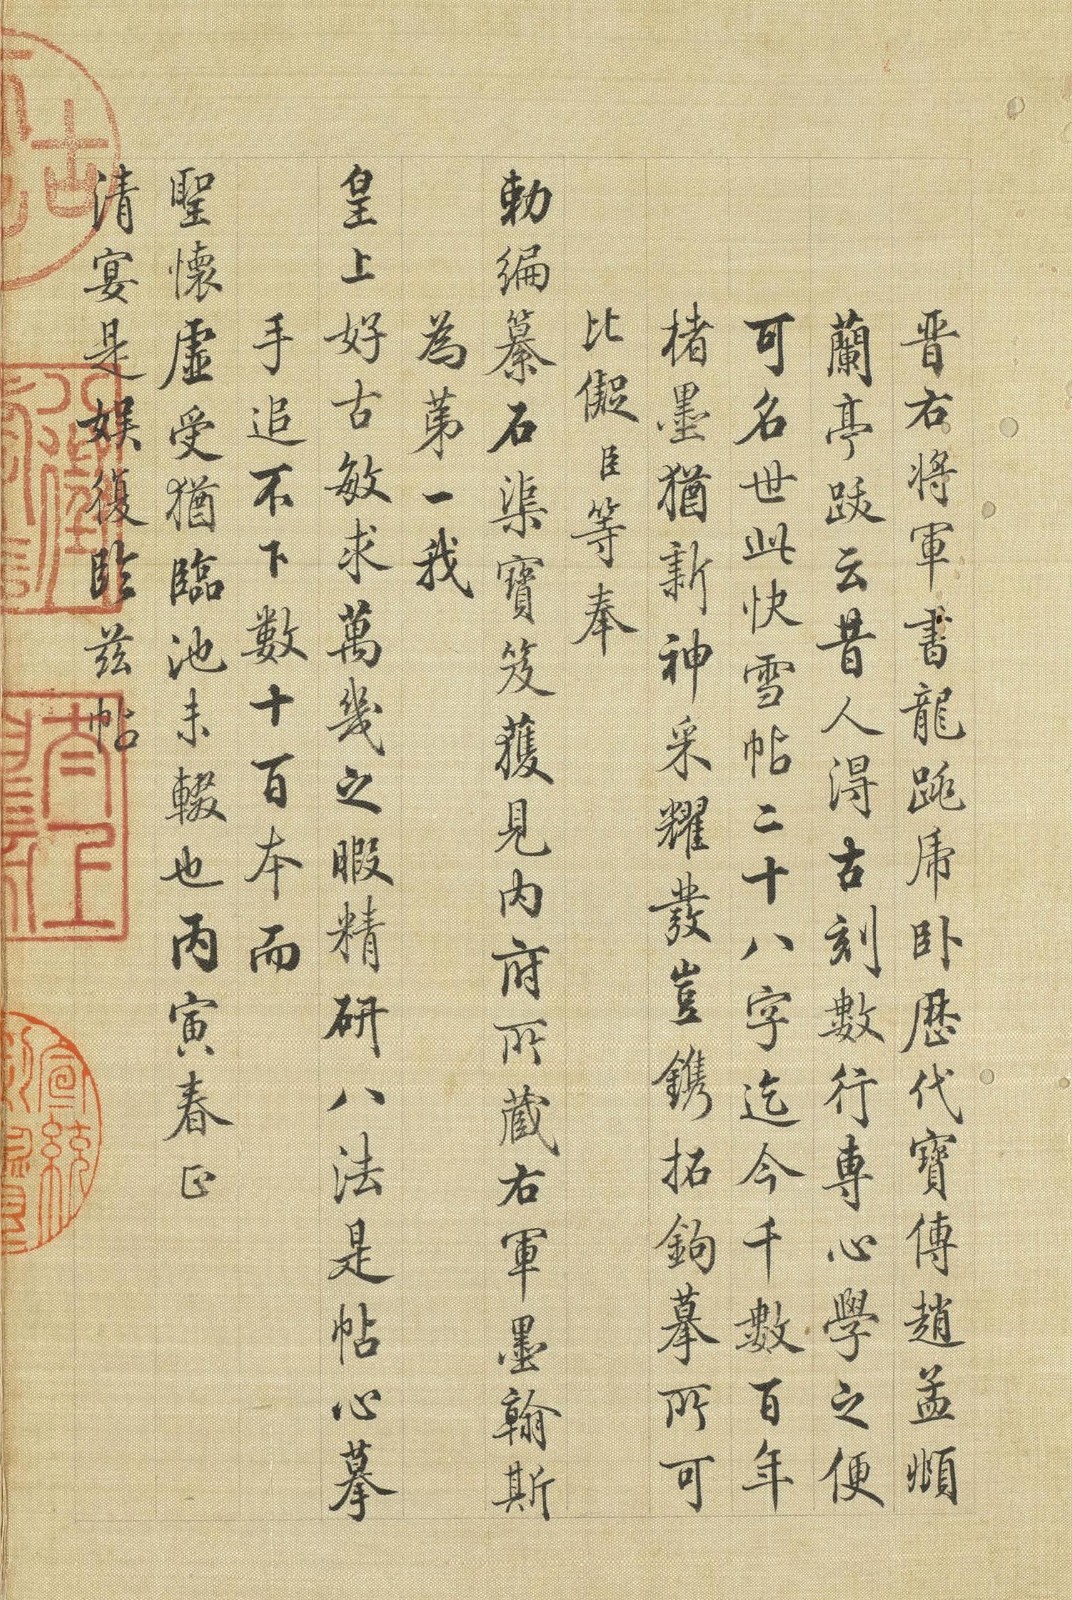 晋右將軍書龍跳虎卧歷代寶傳趙孟頫
蘭亭跋云昔人得古刻數行專心學之便
可名世此快雪帖二十八字迄今千數百年
楮墨猶新神采耀發豈鐫拓鉤摹所可
比儗臣等奉
勅編纂石渠寶笈獲見内府所蔵右軍墨翰斯
為第一我
皇上好古敏求萬幾之暇精研八法是帖心摹
手追不下數十百本而
聖懷虛受猶臨池未輟也丙寅春正
清宴是娱復臨兹帖
太上
宣統